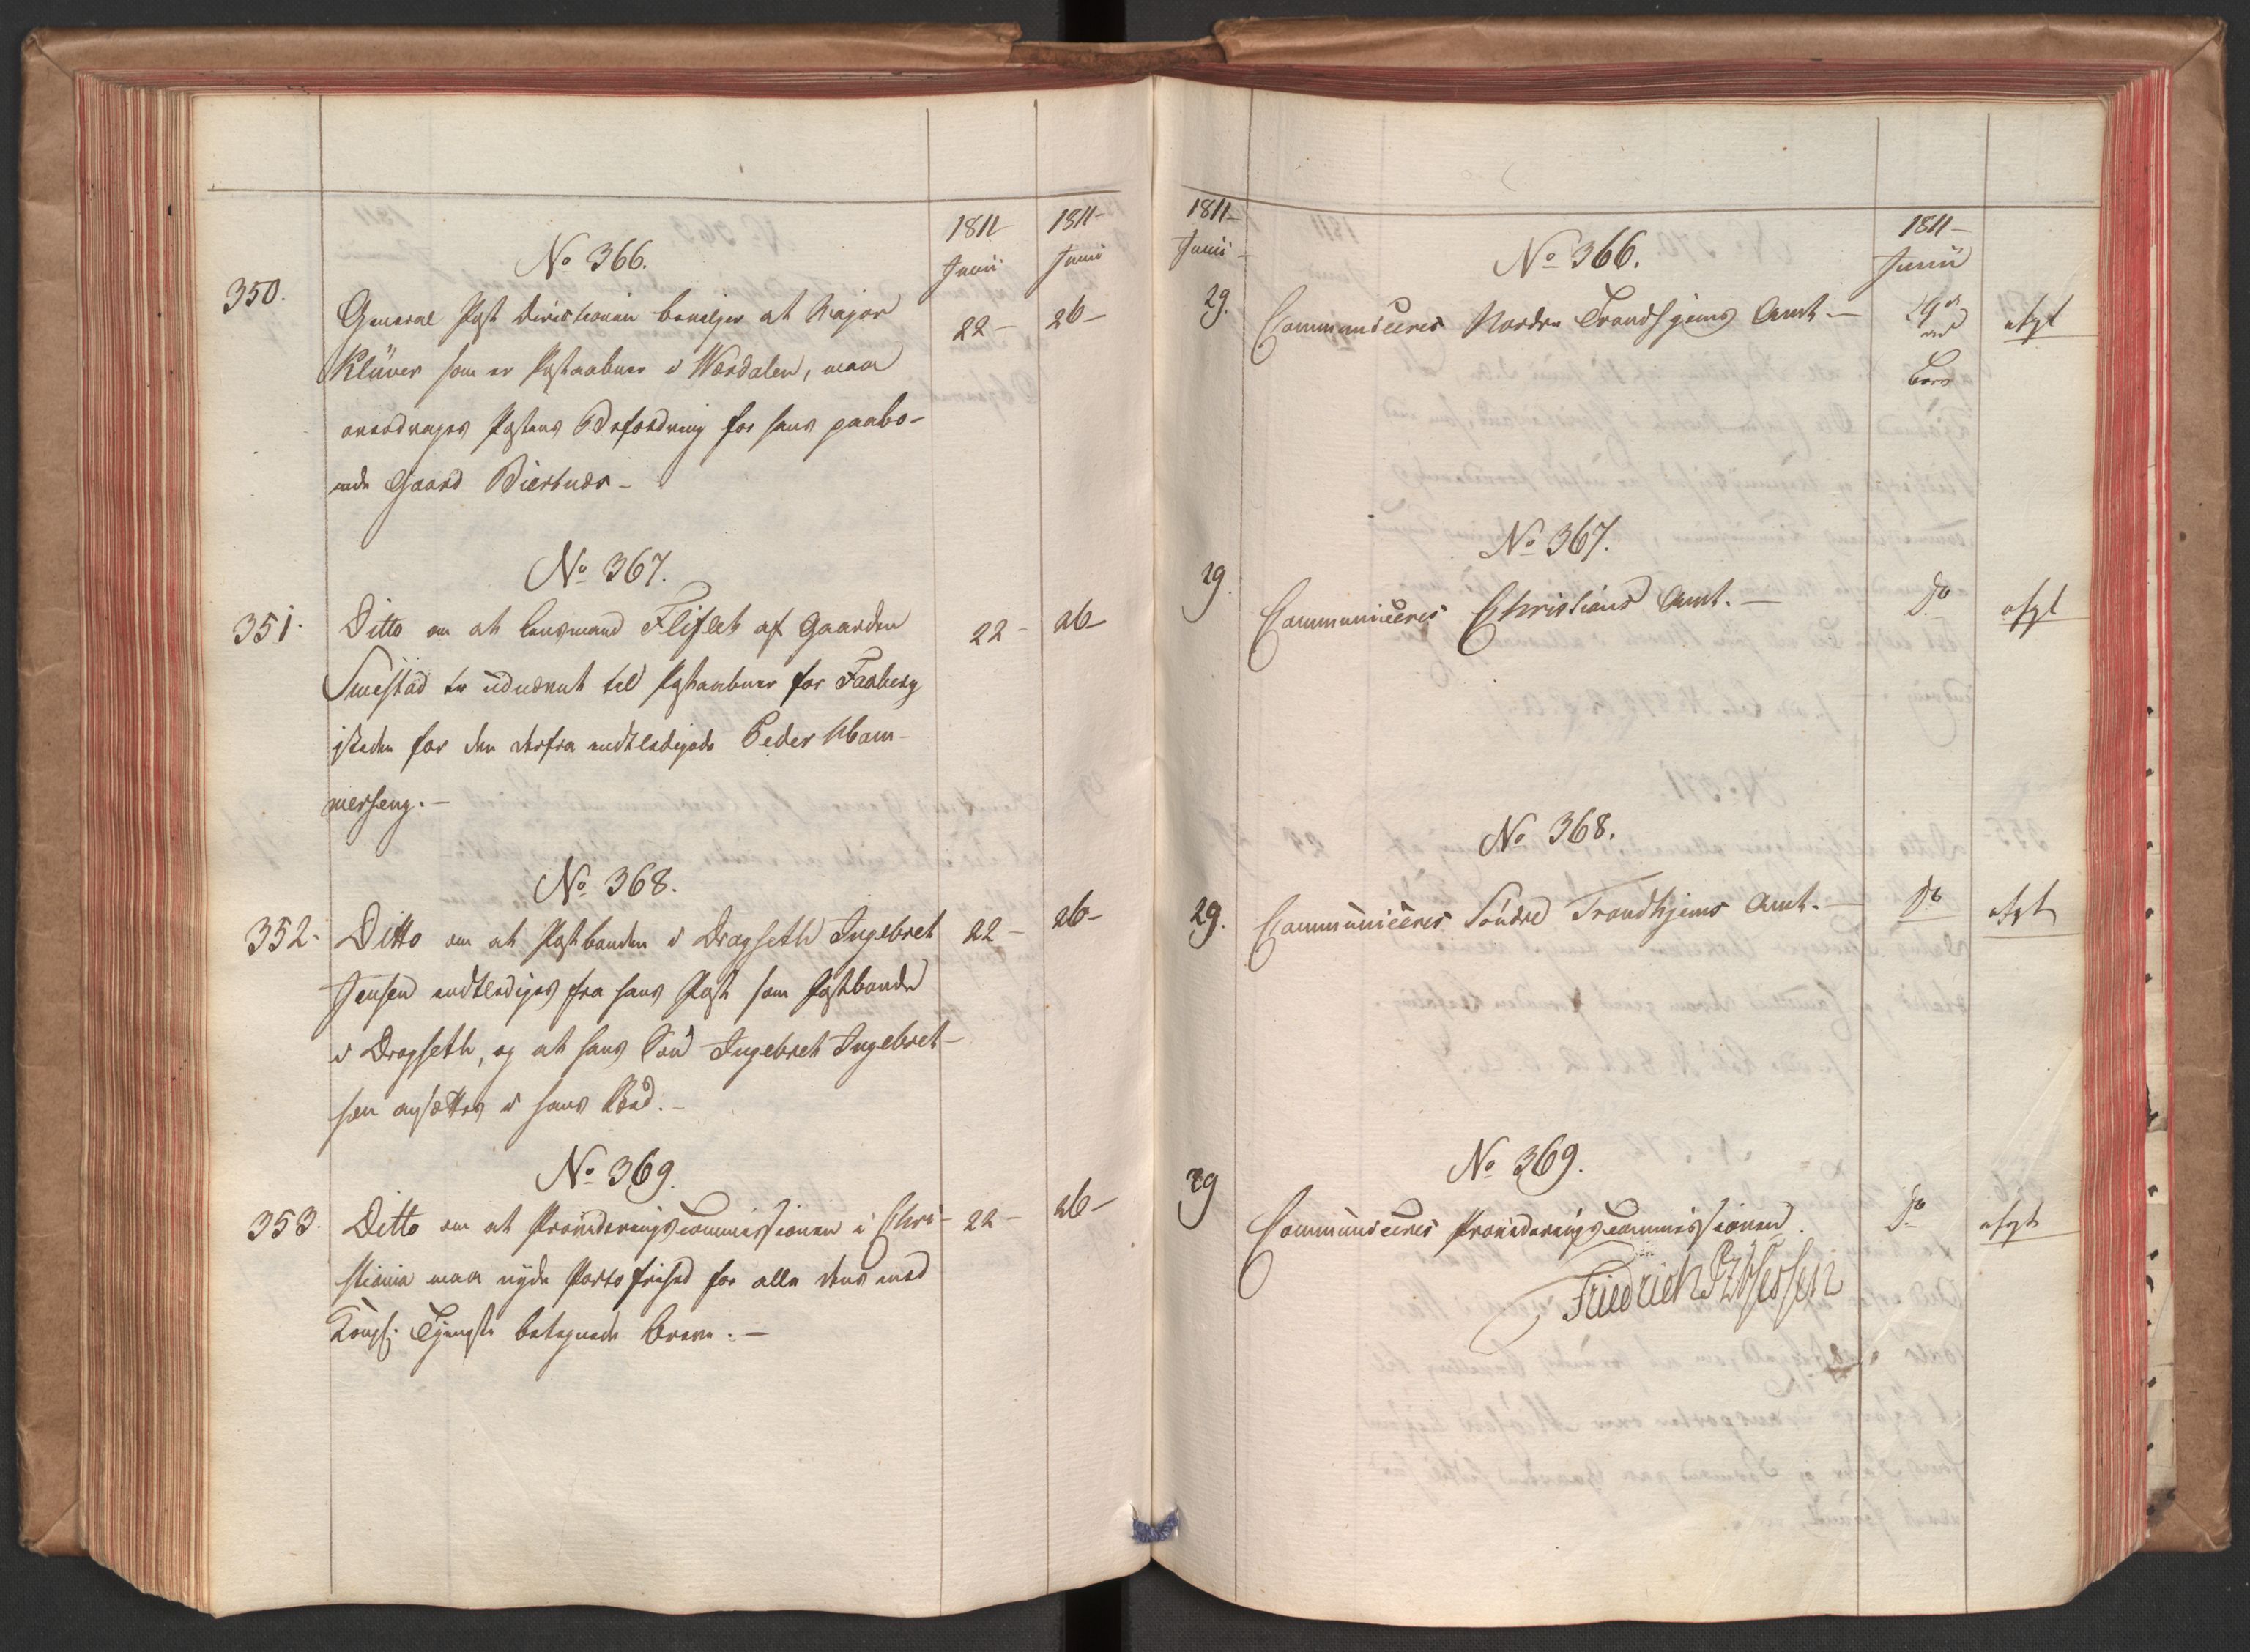 1811 1811
Junii Junii
No 366.
350. General Post Directionen bevilger at Major 22 – 26 –
Klüver som er Postaabner i Værdalen, maa
overdrages Postens Befordring for hans paaboe-
ende Gaard Biertnæs –
No 367.
351. Ditto om at Lensmand Fliflet af Gaarden 22 – 26 –
Smestad er udnævnt til Postaabner for Faaberg
isteden for den derfra entledigede Peder Ham-
merseng. –
No 368.
352. Ditto om at Postbonden i Dragseth Ingebret 22 – 26 –
Jensen entlediges fra hans Post som Postbonde
i Dragseth, og at hans Søn Ingebret Ingebret-
sen ansættes i hans Sted. –
No 369.
353. Ditto om at Provideringscommissionen i Chri- 22 – 26 –
stiania maa nyde Portofrihed for alle dens med
Kongel: Tjeneste betegnede Breve. –
1811 – 1811 –
Junii – Junii
No 366.
29. Communiceres Nordre Trondhjems Amt. – 29de afgt
No 367.
29. Communiceres Christians Amt. – Do afgt
No 368.
29. Communiceres Søndre Trondhjems Amt. – Do afgt
No 369.
29 Communiceres Provideringscommissionen. Do afgt
Friedrich